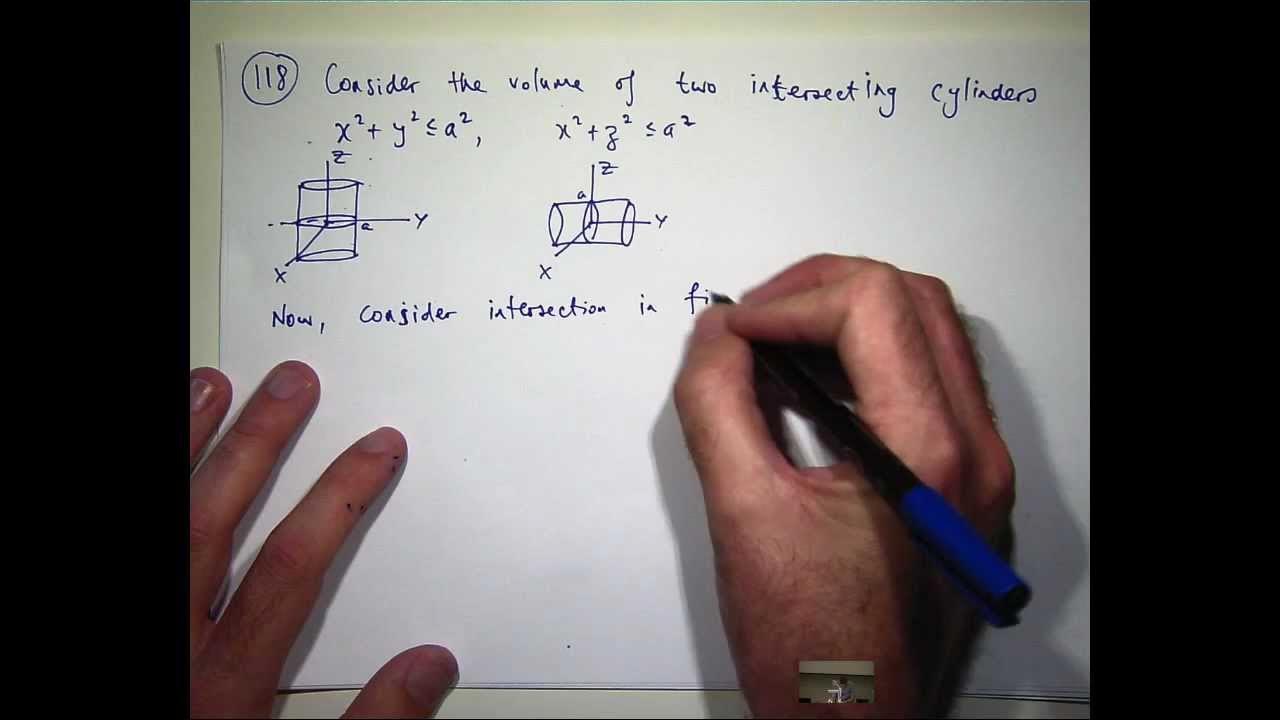 118 Consider the volume of two intersecting cylinders
x² + y² ≤ a², x² + z² ≤ a²
z z
a
y a y
x x
Now, consider intersection in fi